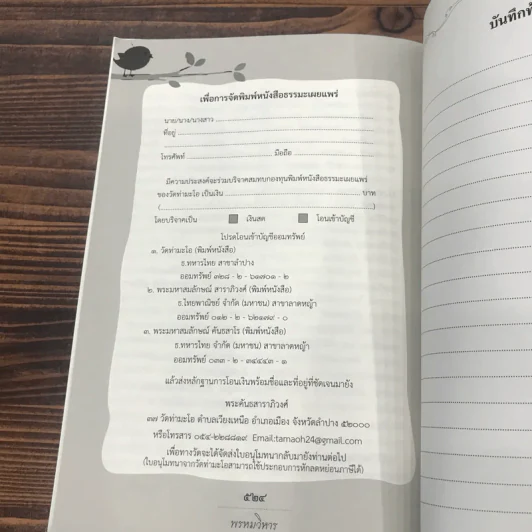 เพื่อการจัดพิมพ์หนังสือธรรมะเผยแพร่
นาย/นาง/นางสาว
ที่อยู่
โทรศัพท์ มือถือ
มีความประสงค์จะร่วมบริจาคสมทบกองทุนพิมพ์หนังสือธรรมะเผยแพร่
ของวัดท่ามะโอ เป็นเงิน บาท
(....................)
โดยบริจาคเป็น เงินสด โอนเข้าบัญชี
โปรดโอนเข้าบัญชีออมทรัพย์
๑. วัดท่ามะโอ (พิมพ์หนังสือ)
ธ.ทหารไทย สาขาลำปาง
ออมทรัพย์ ๓๒๘ - ๒ - ๖๑๗๐๑ - ๒
๒. พระมหาสมลักษณ์ สาราภิวงศ์ (พิมพ์หนังสือ)
ธ.ไทยพาณิชย์ จำกัด (มหาชน) สาขาลาดหญ้า
ออมทรัพย์ ๐๑๒ - ๒ - ๖๒๑๗๙ - ๐
๓. พระมหาสมลักษณ์ คันธสาโร (พิมพ์หนังสือ)
ธ.ทหารไทย จำกัด (มหาชน) สาขาลาดหญ้า
ออมทรัพย์ ๐๓๓ - ๒ - ๓๔๔๔๓ - ๑
แล้วส่งหลักฐานการโอนเงินพร้อมชื่อและที่อยู่ที่ชัดเจนมายัง
พระคันธสาราภิวงศ์
๓๗ วัดท่ามะโอ ตำบลเวียงเหนือ อำเภอเมือง จังหวัดลำปาง ๕๒๐๐๐
หรือโทรสาร ๐๕๔-๒๒๘๘๑๙ Email:tamaoh24@gmail.com
เพื่อทางวัดจะได้จัดส่งใบอนุโมทนากลับมายังท่านต่อไป
(ใบอนุโมทนาจากวัดท่ามะโอสามารถใช้ประกอบการหักลดหย่อนภาษีได้)
๕๒๔
พรหมวิหาร
บันทึก